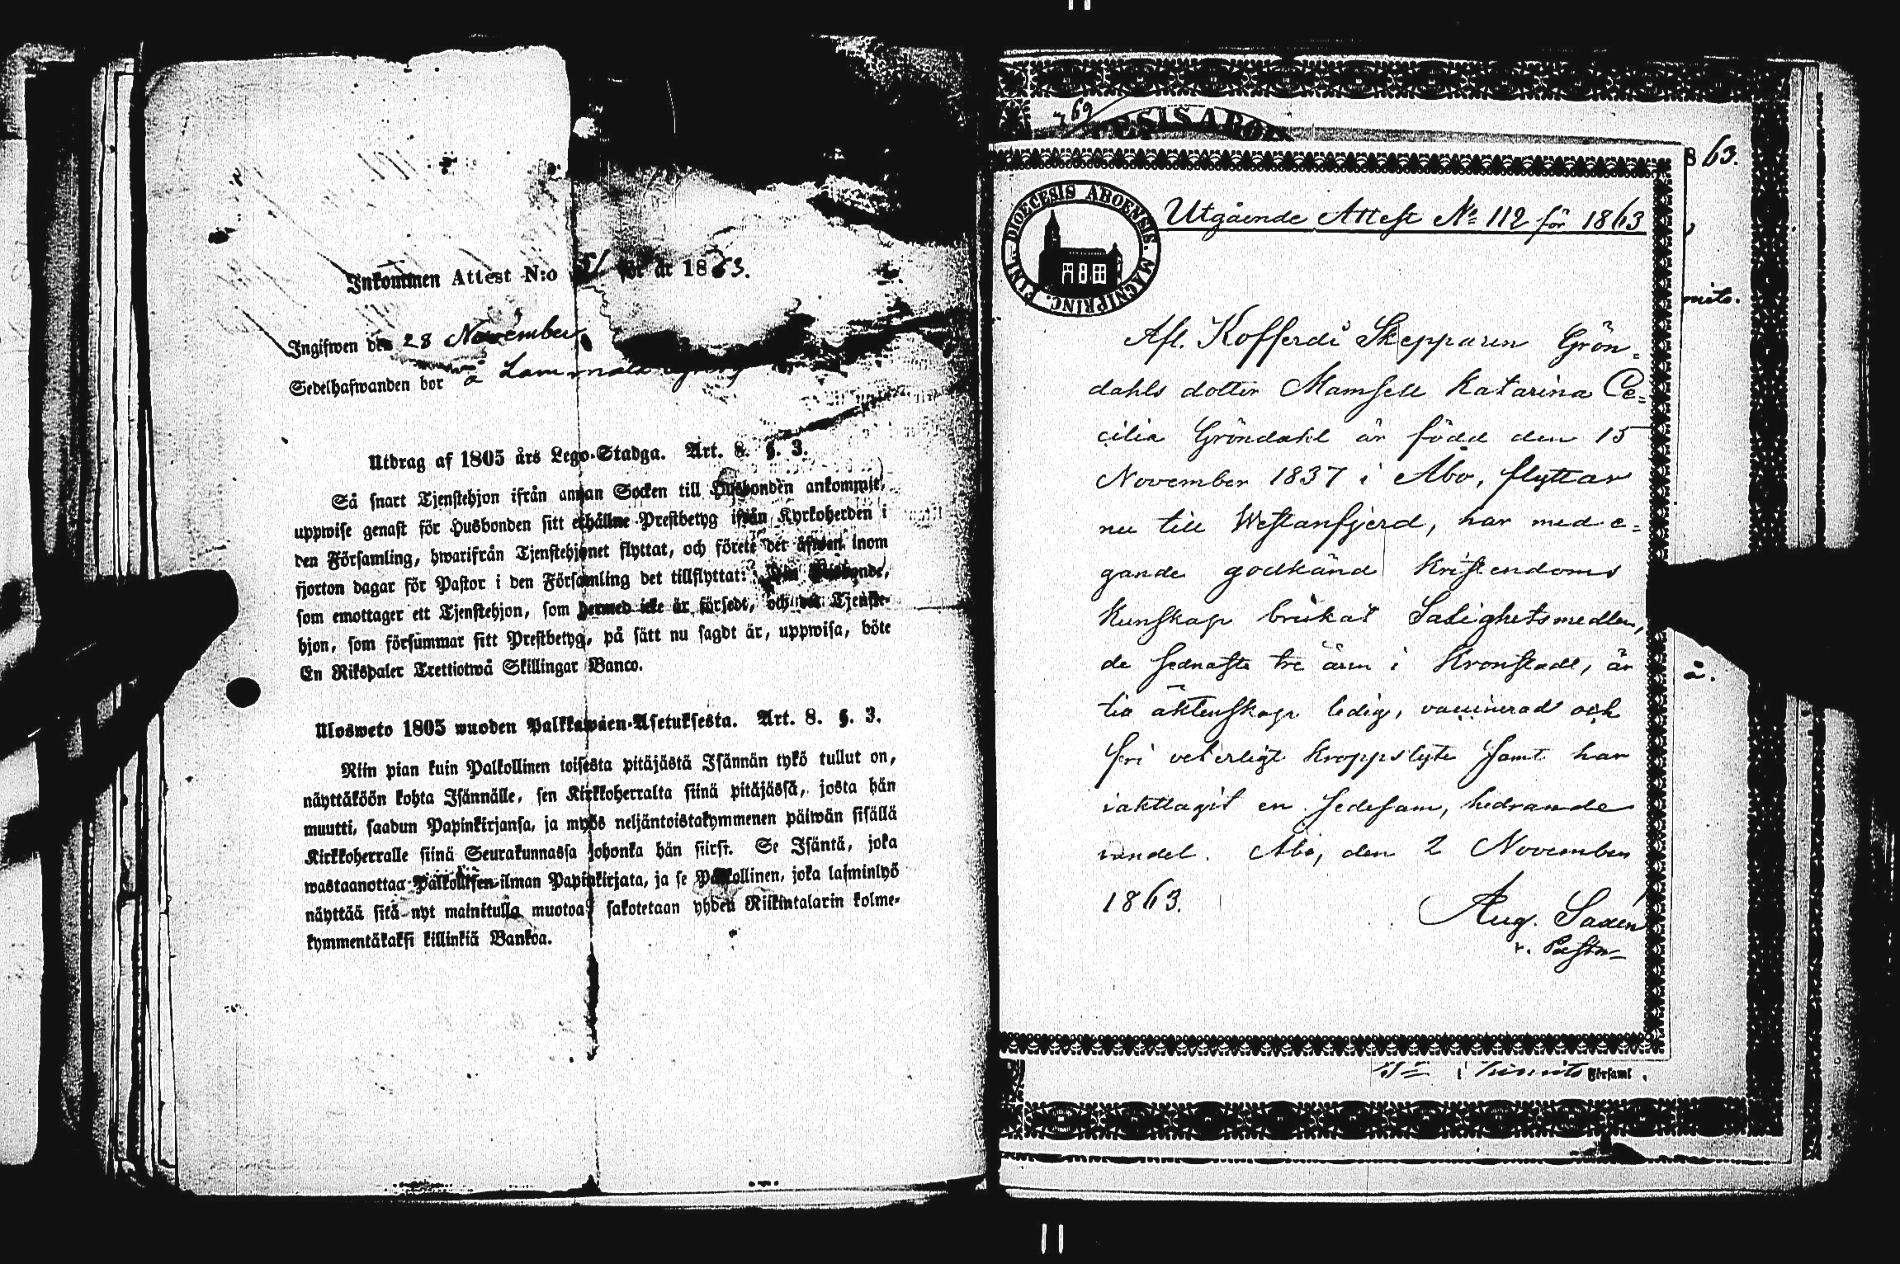 Inkommen Attest N:o 51 för år 1863.
Ingifwen den 28 November
Sedelhafwanden bor å Lammala
Utdrag af 1805 års Lego-Stadga. Art. 8. §. 3.
Så snart Tjenstehjon ifrån annan Socken till Husbonden ankommit,
uppwise genast för Husbonden sitt erhållne Prestbetyg ifrån Kyrkoherden i
den Församling, hwarifrån Tjenstehjonet flyttat, och förete det äfwen inom
fjorton dagar för Pastor i den Församling det tillflyttat: Den Husbonde,
som emottager ett Tjenstehjon, som hermed icke är försedt, och det Tjenste-
hjon, som försummar sitt Prestbetyg, på sätt nu sagdt är, uppwisa, böte
En Riksdaler Trettiotwå Skillingar Banco.
Ulosweto 1805 wuoden Palkkawäen-Asetuksesta. Art. 8. §. 3.
Niin pian kuin Palkollinen toisesta pitäjästä Isännän tykö tullut on,
näyttäköön kohta Isännälle, sen Kirkkoherralta siinä pitäjässä, josta hän
muutti, saadun Papinkirjansa, ja myös neljäntoistakymmenen päiwän sisällä
Kirkkoherralle siinä Seurakunnassa johonka hän siirsi. Se Isäntä, joka
wastaanottaa Palkollisen ilman Papinkirjata, ja se Palkollinen, joka laiminlyö
näyttää sitä nyt mainitulla muotoa, sakotetaan yhden Riikintalarin kolme-
kymmentäkaksi killinkiä Bankoa.
769
DIOECESIS ABOENSIS. MAGNI PRINC. FINL.
Utgående Attest No 112 för 1863
Afl. Kofferdi Skepparen Grön-
dahls dotter Mamsell Katarina Ce-
cilia Gröndahl är född den 15
November 1837 i Åbo, flyttar
nu till Westanfjerd, har med e-
gande godkänd kristendoms
kunskap brukat Salighetsmedlen,
de sednaste tre åren i Kronstadt, är
till äktenskap ledig, vaccinerad och
fri veterligt kroppslyte samt har
iakttagit en sedesam, hedrande
vandel. Åbo, den 2 November
1863.
Aug. Saxén
v. Pastor
863.
i Kimito Församl.